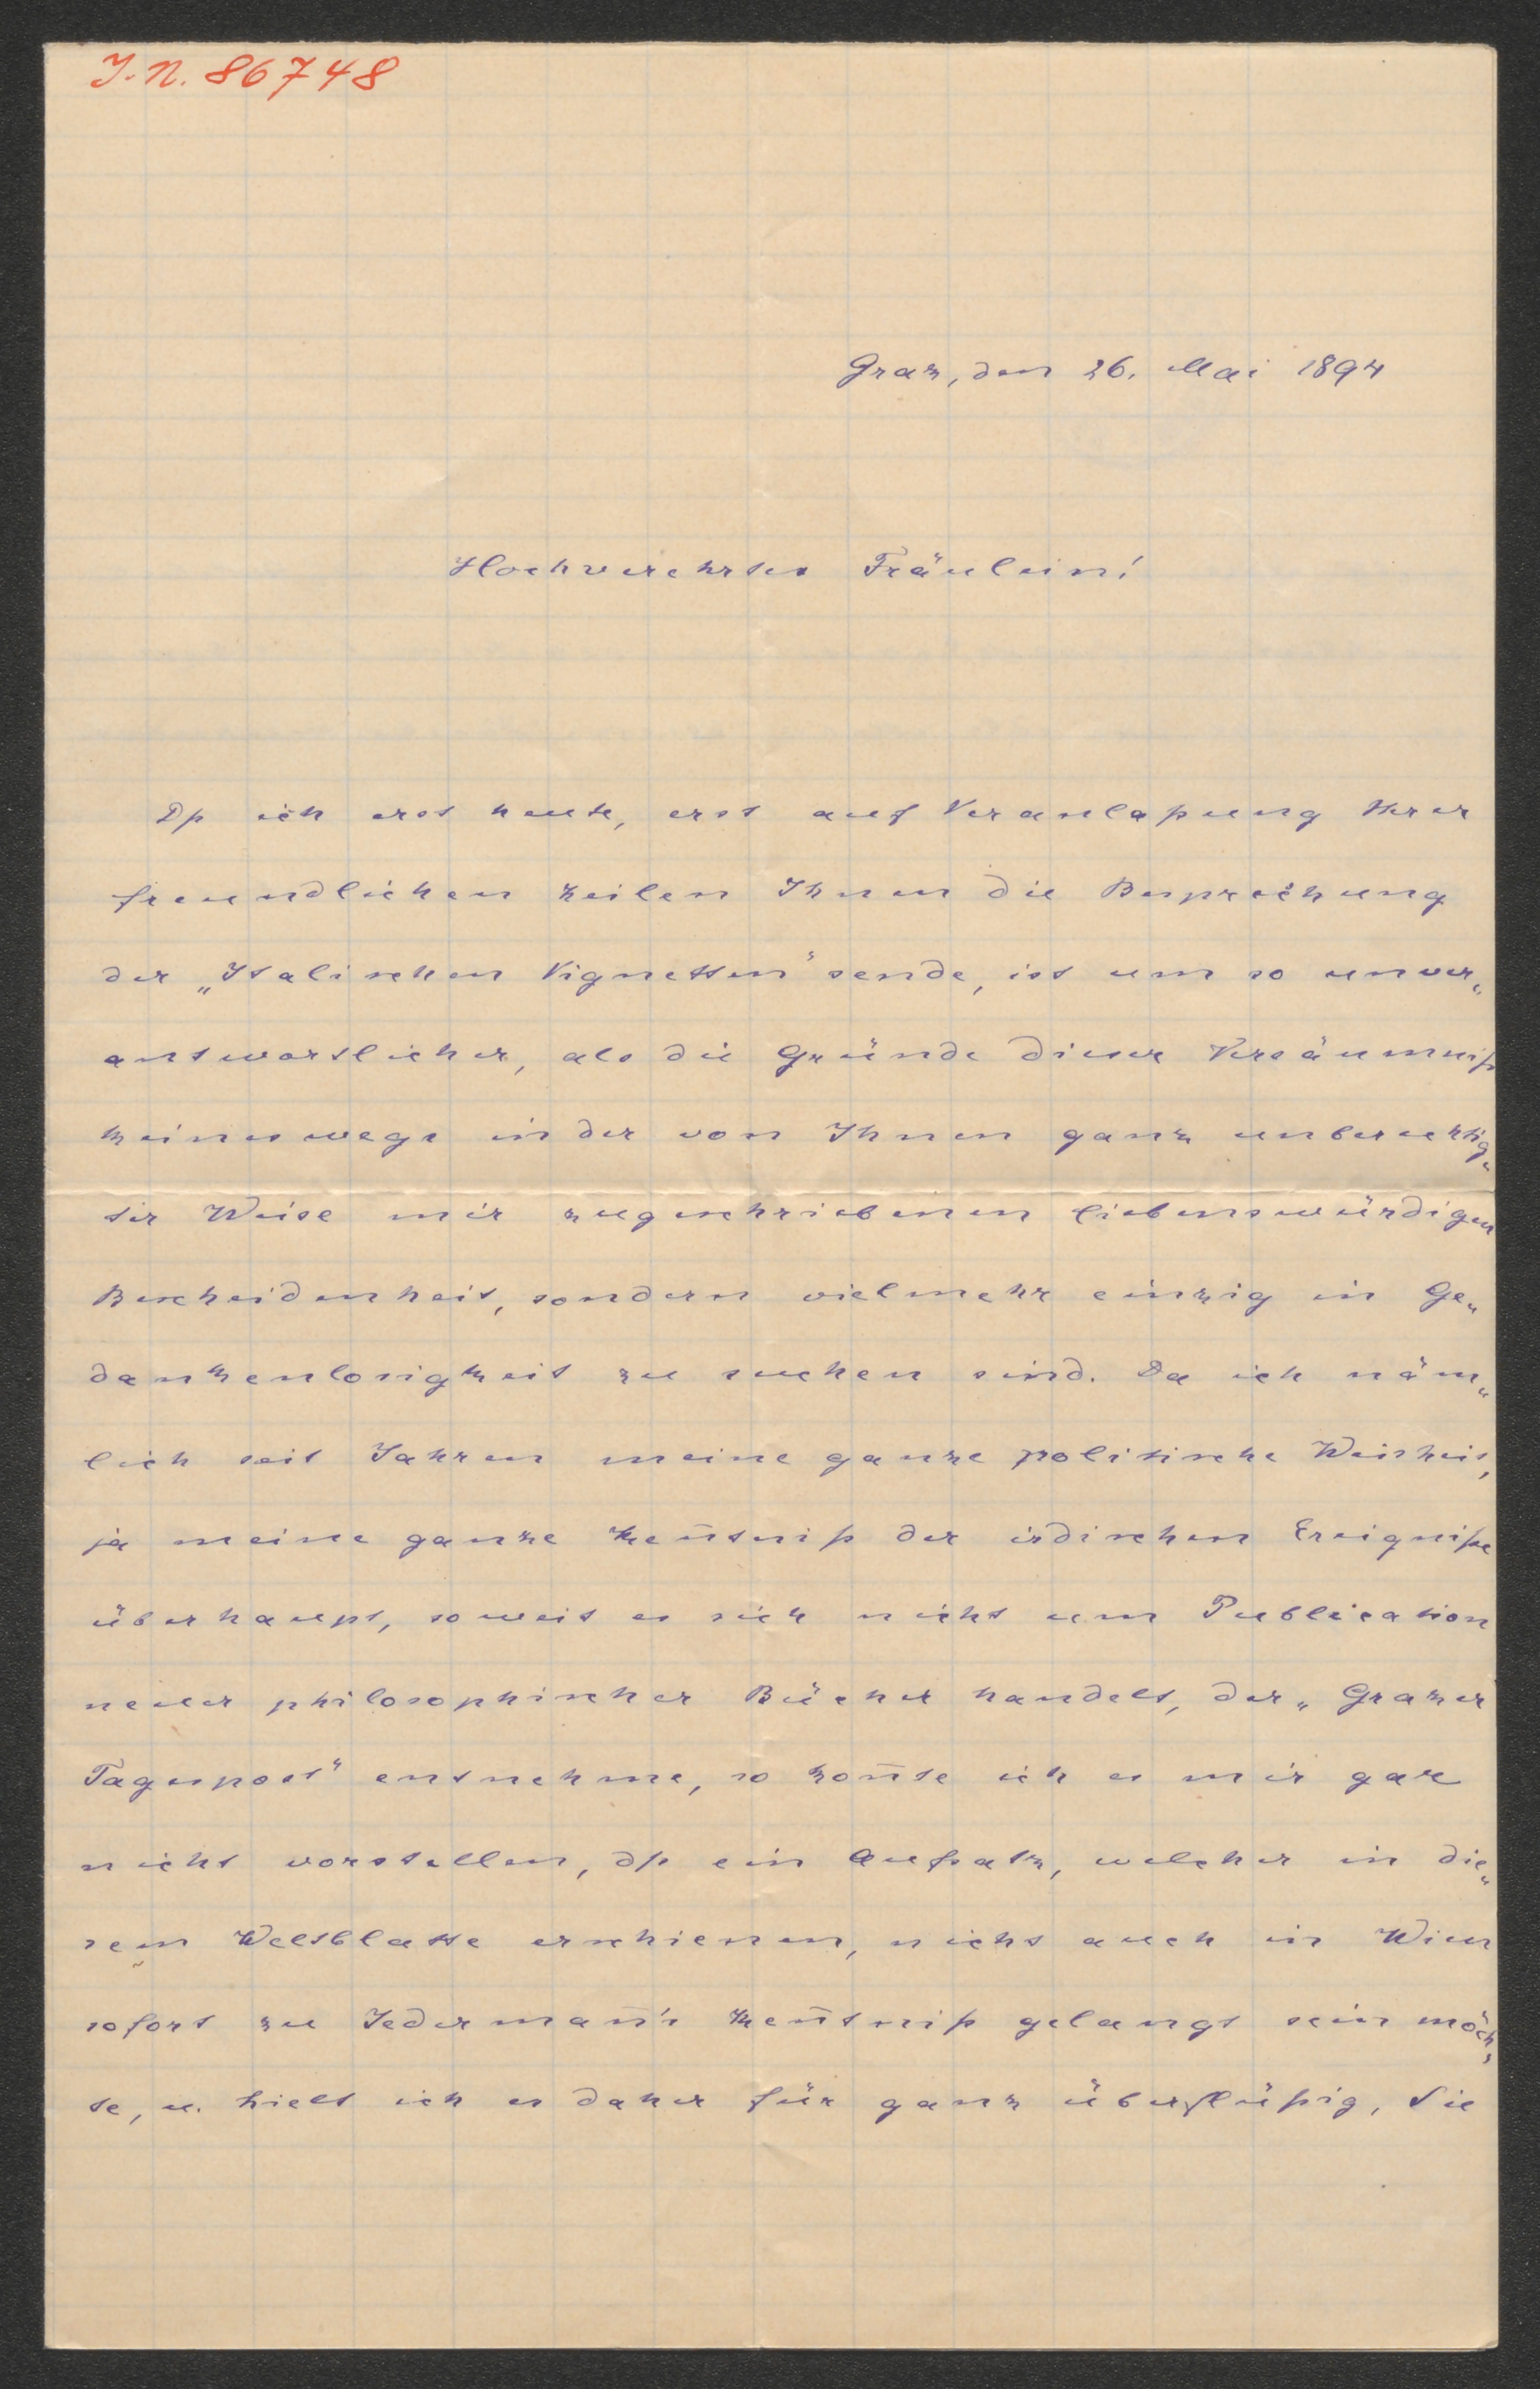 J.N. 86748
Graz, den 26. Mai 1894
Hochverehrtes Fräulein!
Dß ich erst heute, erst auf Veranlaßung Ihrer
freundlichen Zeilen Ihnen die Besprechung
der „Italischen Vignetten" sende, ist um so unver„
antwortlicher, als die Gründe dieser Versäumniß
keineswegs in der von Ihnen ganz unberechtig„
ter Weise mir zugeschriebenen liebenswürdigen
Bescheidenheit, sondern vielmehr einzig in Ge„
dankenlosigkeit zu suchen sind. Da ich näm„
lich seit Jahren meine ganze politische Weisheit,
ja meine ganze Keñtniß der irdischen Ereigniße
überhaupt, soweit es sich nicht um Publication
neuer philosophischer Bücher handelt, der „Grazer
Tagespost" entnehme, so koñte ich es mir gar
nicht vorstellen, dß ein Aufsatz, welcher in die„
sem Weltblatte erschienen, nicht auch in Wien
sofort zu Jedermañ's Keñtniß gelangt sein möch„
te, u. hielt ich es daher für ganz überflüßig, Sie